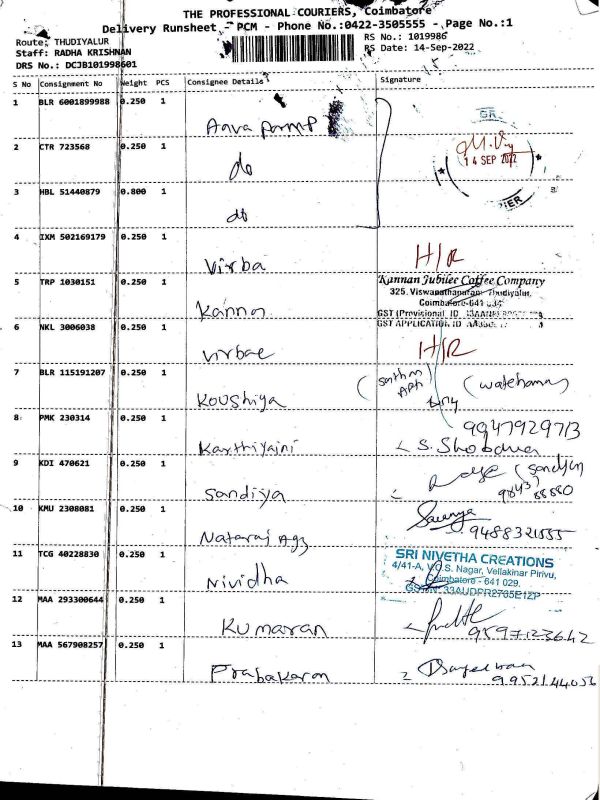 THE PROFESSIONAL COURIERS, Coimbatore
Delivery Runsheet - PCM - Phone No.:0422-3505555 - Page No.:1
Route: THUDIYALUR
RS No.: 1019986
Staff: RADHA KRISHNAN
RS Date: 14-Sep-2022
DRS No.: DCJB101998601
S No Consignment No Weight PCS Consignee Details Signature
1 BLR 6001899988 0.250 1
2 CTR 723568 0.250 1 do
14 SEP 2022
3 HBL 51440879 0.800 1 do
4 IXM 502169179 0.250 1 Virba H/R
5 TRP 1030151 0.250 1 Kannan
Kannan Jubilee Coffee Company
325, Viswanathapuram Thudiyalur,
Coimbatore-641 034
GST (Provisional) ID
GST APPLICATION ID
6 NKL 3006038 0.250 1 Virbae H/R
7 BLR 115191207 0.250 1 Koushiya
8 PMK 230314 0.250 1 Karthiyaini S. Shobana
9 KDI 470621 0.250 1 Sandiya
10 KMU 2308081 0.250 1 Nataraj Ags Saranya
9488321555
11 TCG 40228830 0.250 1 Nividha
SRI NIVETHA CREATIONS
4/41-A, V.O.S. Nagar, Vellakinar Pirivu,
Coimbatore - 641 029.
12 MAA 293300644 0.250 1 Kumaran
9597123642
13 MAA 567908257 0.250 1 Prabakaran
9952144056